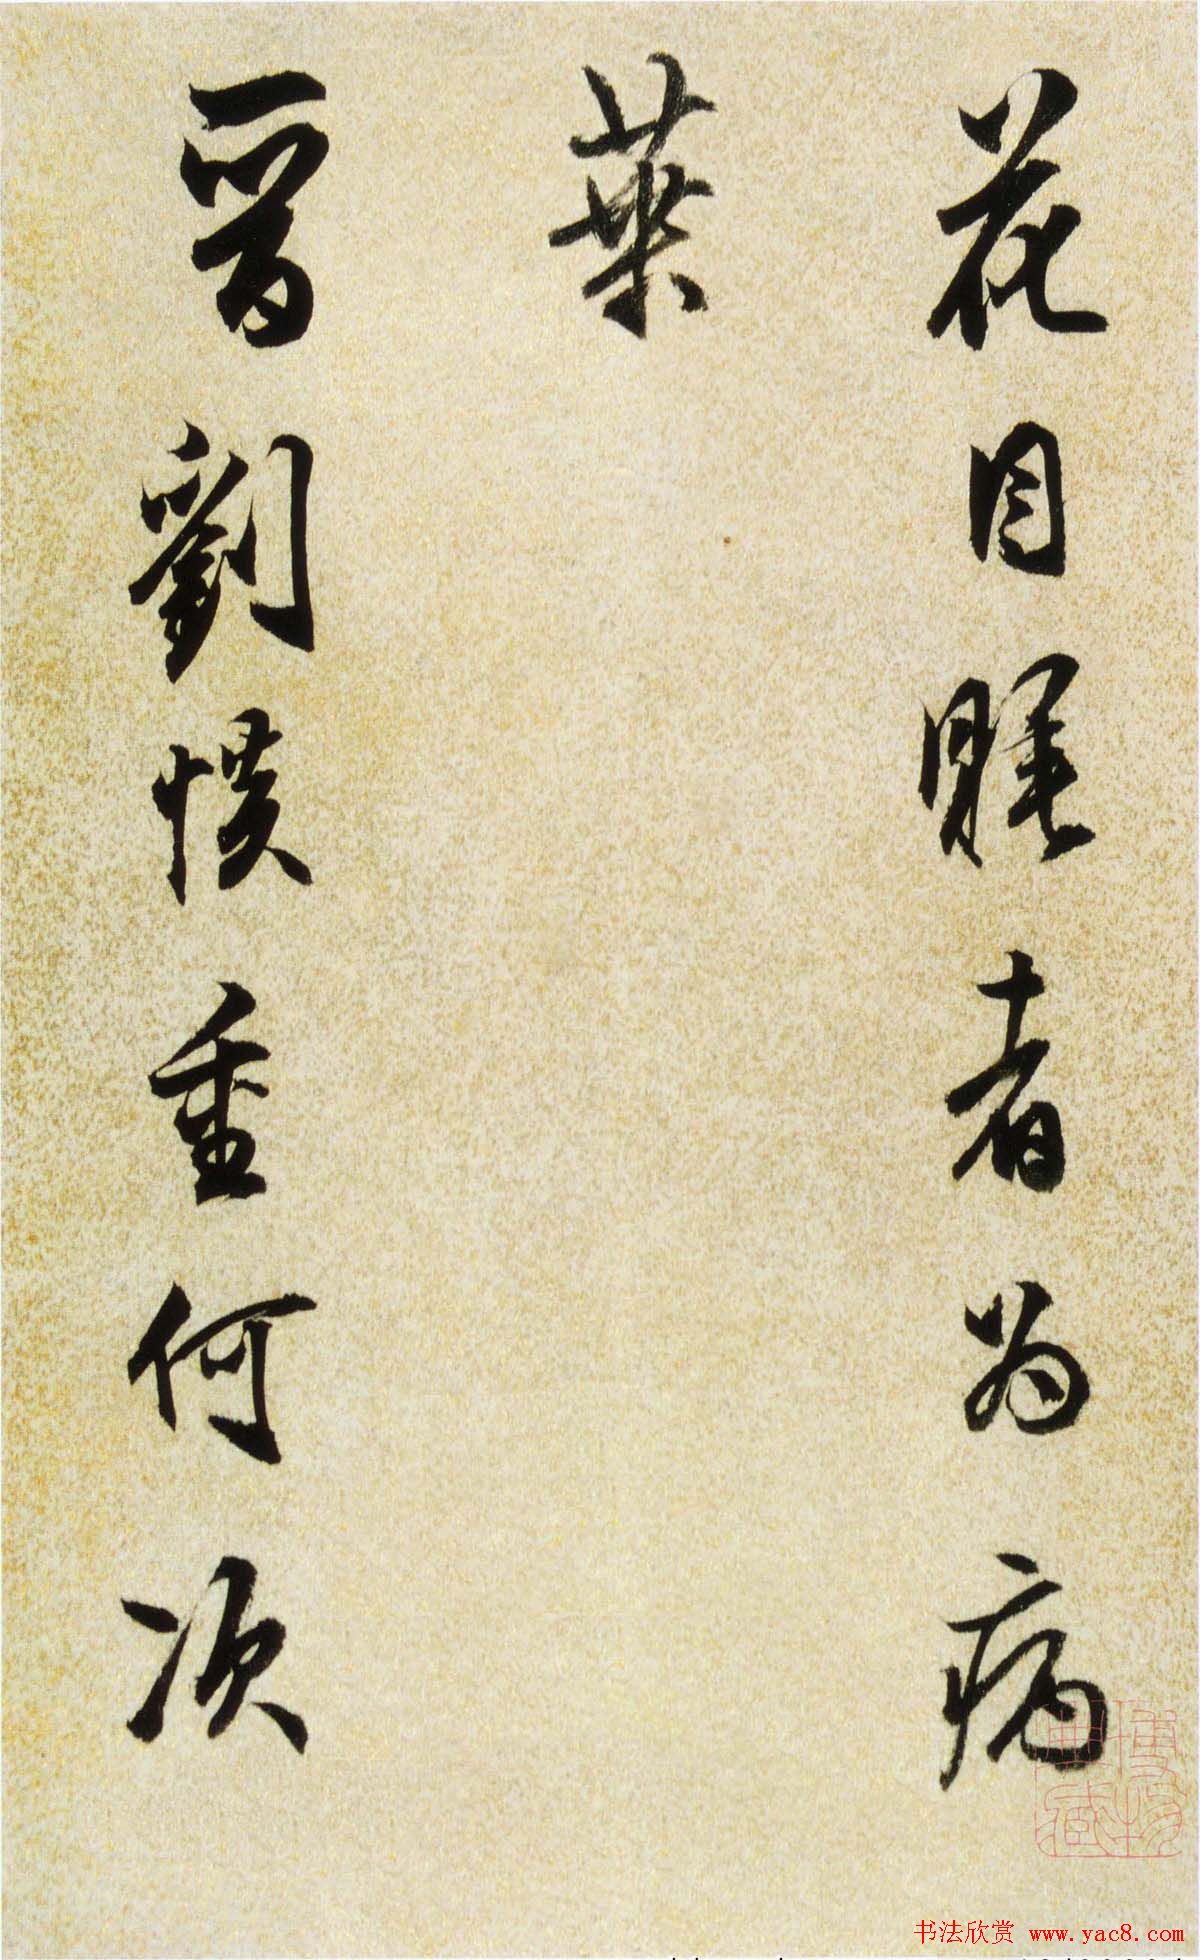 花目者为病
葉
晉劉惔重何次
书法欣赏 www.yac8.com